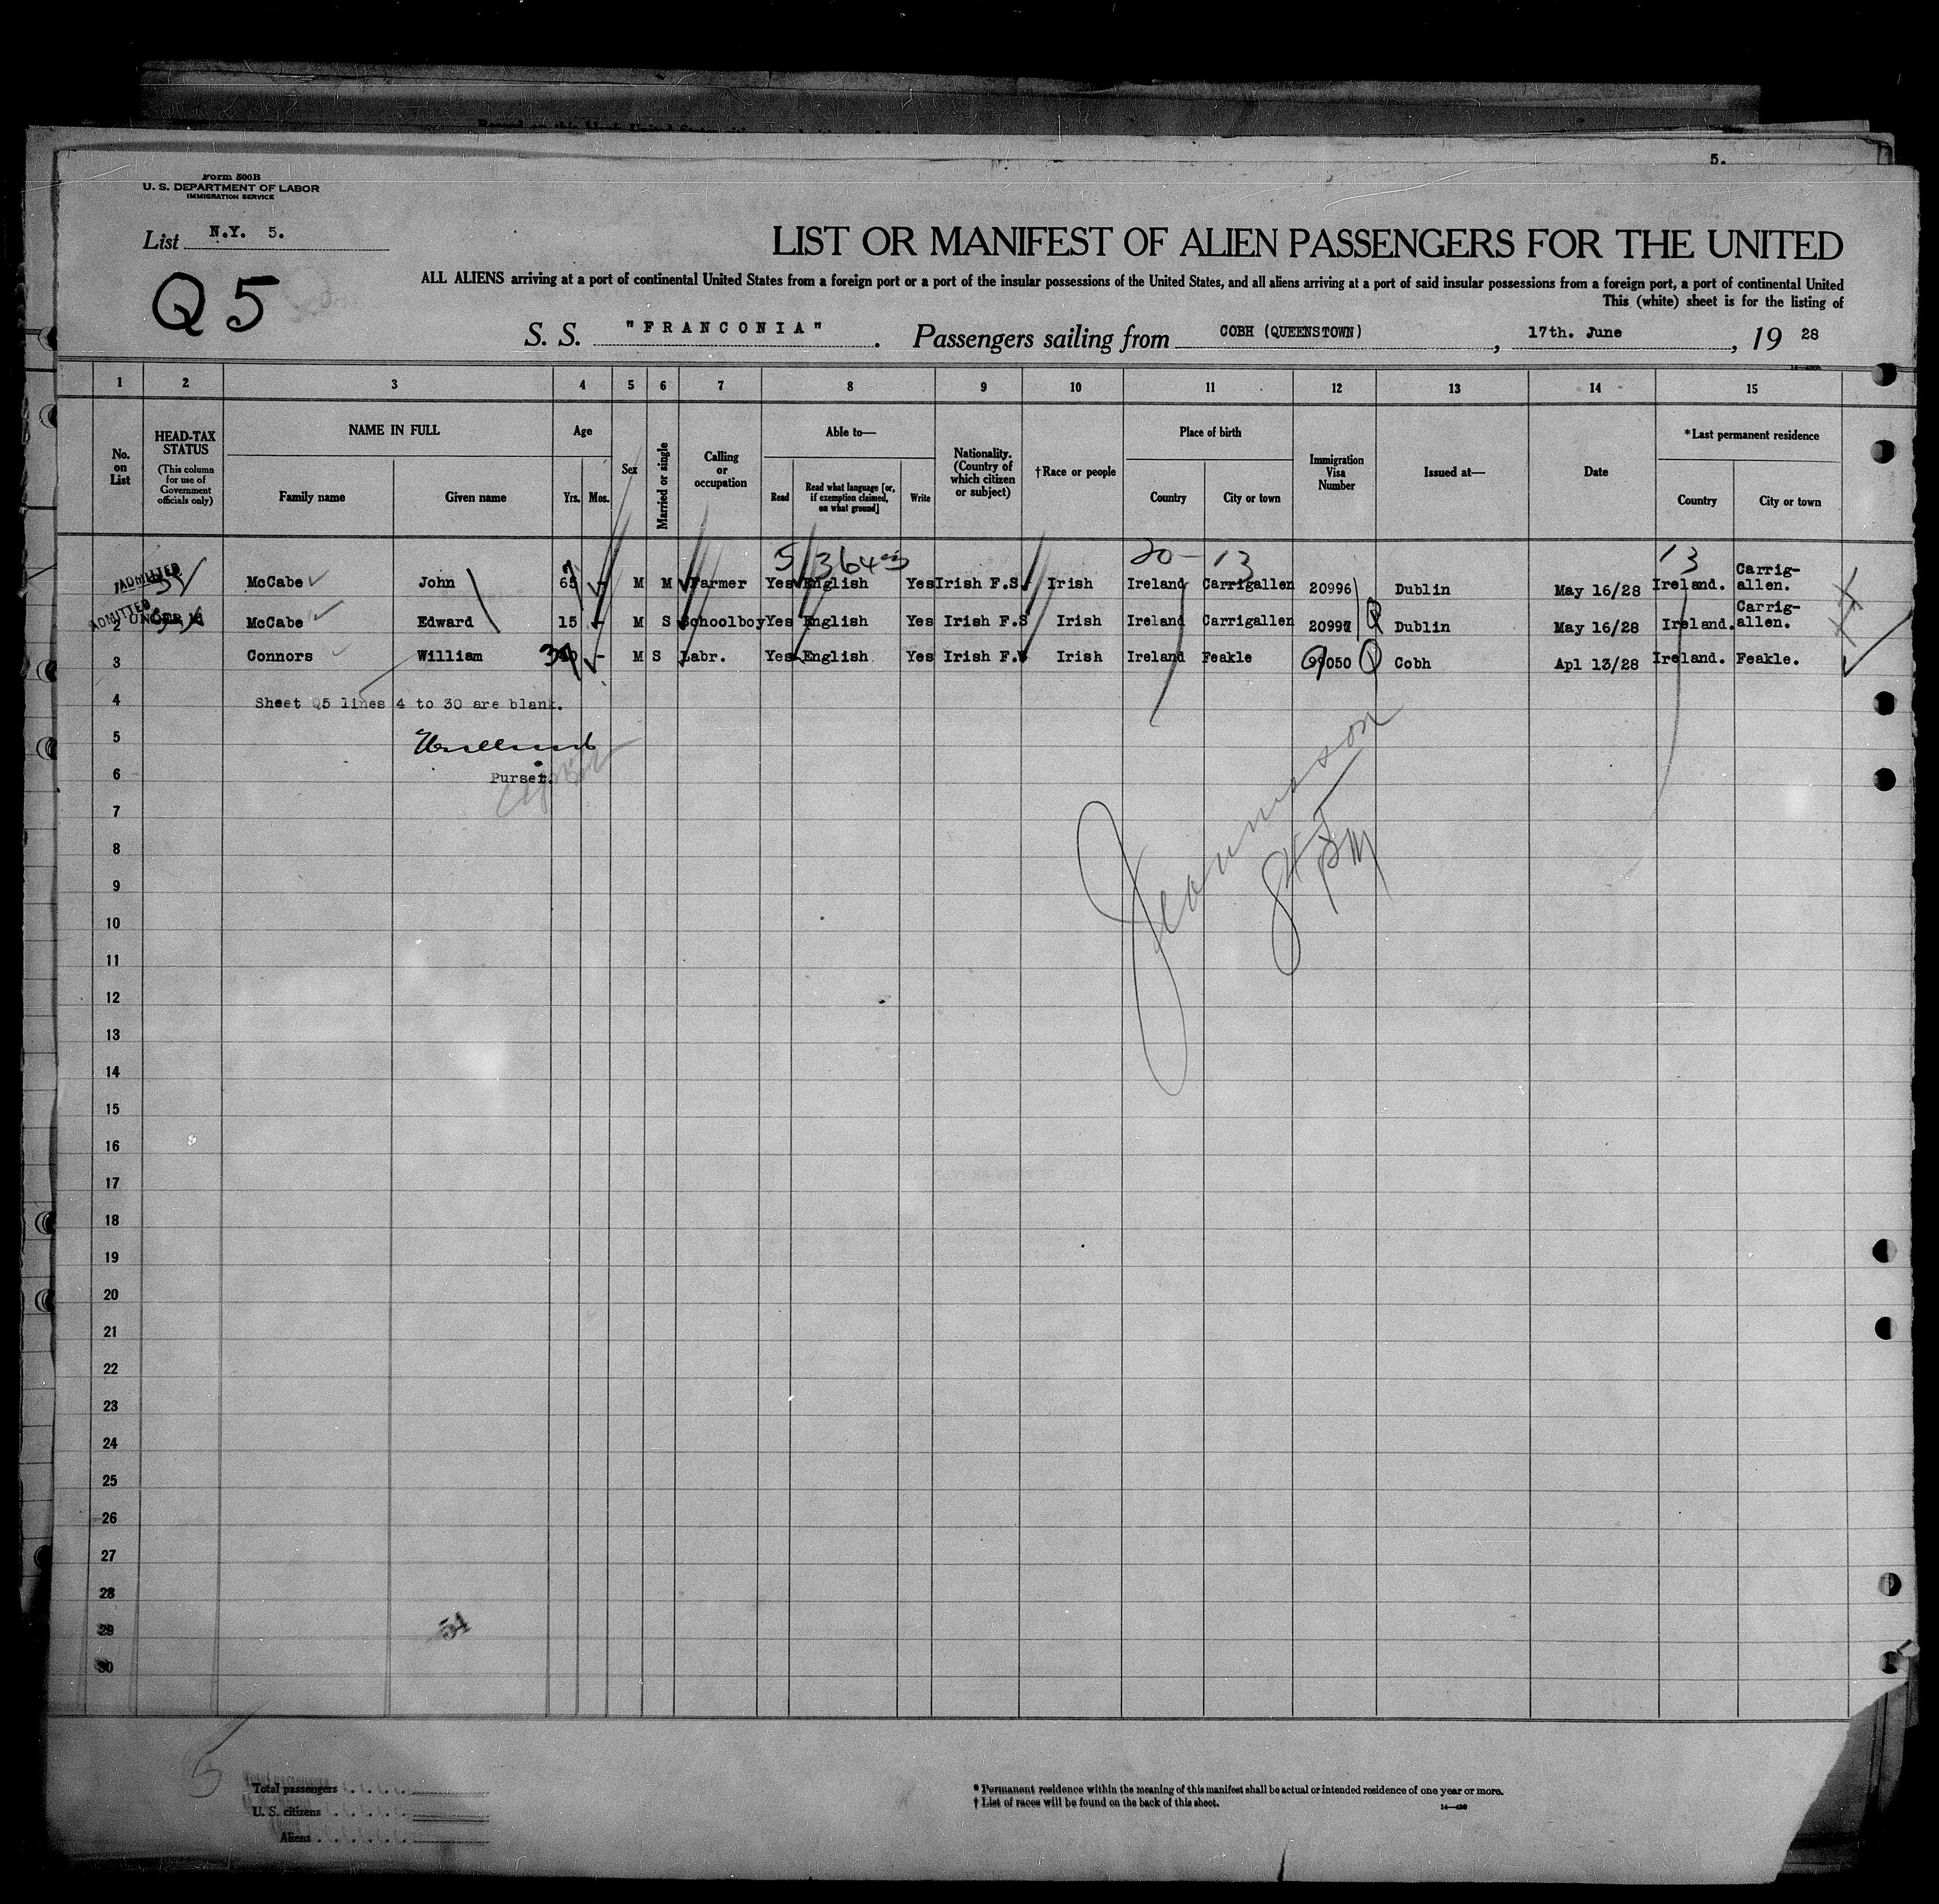 5.
Form 500B
U. S. DEPARTMENT OF LABOR
IMMIGRATION SERVICE
List N.Y. 5.
Q 5
LIST OR MANIFEST OF ALIEN PASSENGERS FOR THE UNITED
ALL ALIENS arriving at a port of continental United States from a foreign port or a port of the insular possessions of the United States, and all aliens arriving at a port of said insular possessions from a foreign port, a port of continental United
This (white) sheet is for the listing of
S. S. "FRANCONIA". Passengers sailing from COBH (QUEENSTOWN), 17th. June, 19 28
1 2 3 4 5 6 7 8 9 10 11 12 13 14 15
No. on List
HEAD-TAX STATUS (This column for use of Government officials only)
NAME IN FULL
Family name Given name
Age
Yrs. Mos.
Sex
Married or single
Calling or occupation
Able to—
Read Read what language [or, if exemption claimed, on what ground] Write
Nationality. (Country of which citizen or subject)
†Race or people
Place of birth
Country City or town
Immigration Visa Number
Issued at—
Date
*Last permanent residence
Country City or town
20 - 13 13
ADMITTED McCabe John 65 - M M Farmer Yes English Yes Irish F.S. Irish Ireland Carrigallen 20996 Dublin May 16/28 Ireland. Carrig-allen.
2 ADMITTED UNDER 16 McCabe Edward 15 - M S Schoolboy Yes English Yes Irish F.S Irish Ireland Carrigallen 20997 Q Dublin May 16/28 Ireland. Carrig-allen.
3 Connors William - M S Labr. Yes English Yes Irish F. Irish Ireland Feakle 050 Q Cobh Apl 13/28 Ireland. Feakle.
4 Sheet Q5 lines 4 to 30 are blank.
5
6 Purser.
7
8
9
10
11
12
13
14
15
16
17
18
19
20
21
22
23
24
25
26
27
28
29 54
30
5
Total passengers
U. S. citizens
Aliens
* Permanent residence within the meaning of this manifest shall be actual or intended residence of one year or more.
† List of races will be found on the back of this sheet.